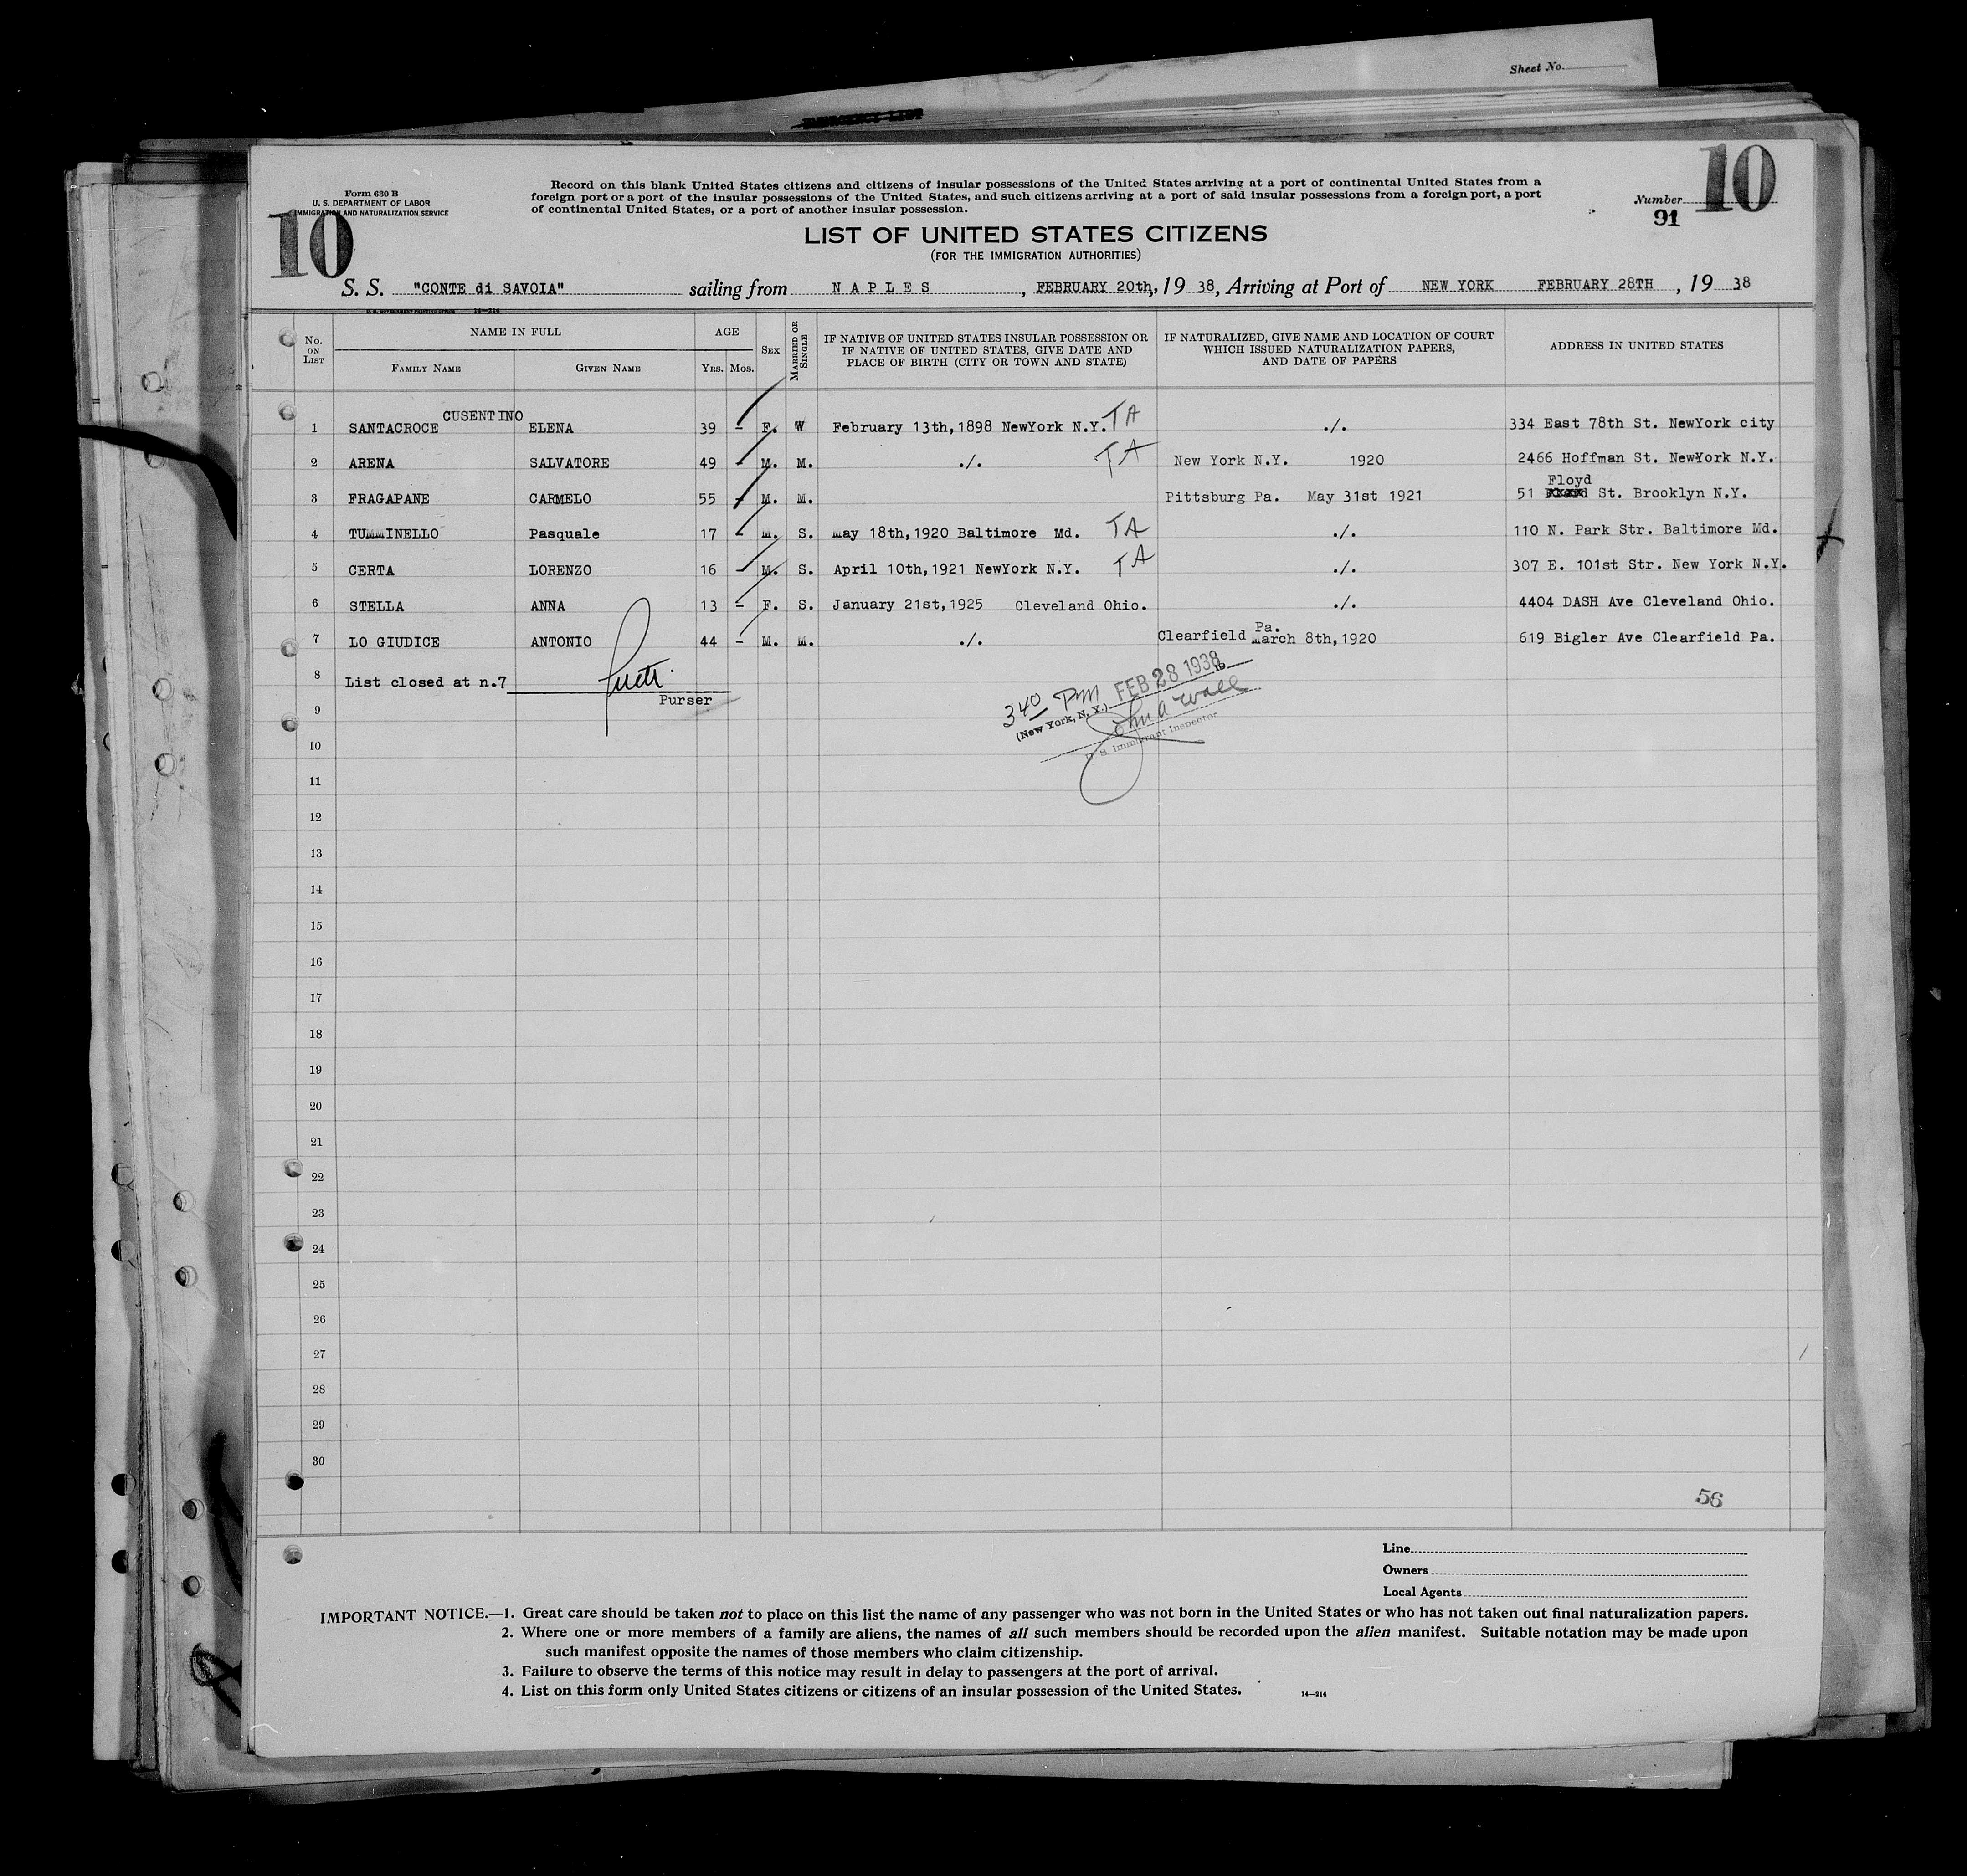 Sheet No.
EMERGENCY LIST
10
Form 630 B
U. S. DEPARTMENT OF LABOR
IMMIGRATION AND NATURALIZATION SERVICE
10
Record on this blank United States citizens and citizens of insular possessions of the United States arriving at a port of continental United States from a
foreign port or a port of the insular possessions of the United States, and such citizens arriving at a port of said insular possessions from a foreign port, a port
of continental United States, or a port of another insular possession.
Number
91
LIST OF UNITED STATES CITIZENS
(FOR THE IMMIGRATION AUTHORITIES)
S. S. "CONTE di SAVOIA" sailing from NAPLES, FEBRUARY 20th, 19 38, Arriving at Port of NEW YORK FEBRUARY 28TH, 19 38
U. S. GOVERNMENT PRINTING OFFICE 14—214
No. ON LIST NAME IN FULL AGE SEX MARRIED OR SINGLE IF NATIVE OF UNITED STATES INSULAR POSSESSION OR IF NATIVE OF UNITED STATES, GIVE DATE AND PLACE OF BIRTH (CITY OR TOWN AND STATE) IF NATURALIZED, GIVE NAME AND LOCATION OF COURT WHICH ISSUED NATURALIZATION PAPERS, AND DATE OF PAPERS ADDRESS IN UNITED STATES
FAMILY NAME GIVEN NAME YRS. MOS.
CUSENTINO
1 SANTACROCE ELENA 39 - F. W February 13th,1898 NewYork N.Y. TA ./. 334 East 78th St. NewYork city
2 ARENA SALVATORE 49 - M. M. ./. TA New York N.Y. 1920 2466 Hoffman St. NewYork N.Y.
Floyd
3 FRAGAPANE CARMELO 55 - M. M. Pittsburg Pa. May 31st 1921 51 St. Brooklyn N.Y.
4 TUMMINELLO Pasquale 17 - M. S. May 18th,1920 Baltimore Md. TA ./. 110 N. Park Str. Baltimore Md.
5 CERTA LORENZO 16 - M. S. April 10th,1921 NewYork N.Y. TA ./. 307 E. 101st Str. New York N.Y.
6 STELLA ANNA 13 - F. S. January 21st,1925 Cleveland Ohio. ./. 4404 DASH Ave Cleveland Ohio.
Pa.
7 LO GIUDICE ANTONIO 44 - M. M. ./. Clearfield March 8th,1920 619 Bigler Ave Clearfield Pa.
8 List closed at n.7
Purser
340 PM FEB 28 1938
(New York, N. Y.)
John A Wall
U. S. Immigrant Inspector
9
10
11
12
13
14
15
16
17
18
19
20
21
22
23
24
25
26
27
28
29
30
56
Line
Owners
Local Agents
IMPORTANT NOTICE.—1. Great care should be taken not to place on this list the name of any passenger who was not born in the United States or who has not taken out final naturalization papers.
2. Where one or more members of a family are aliens, the names of all such members should be recorded upon the alien manifest. Suitable notation may be made upon
such manifest opposite the names of those members who claim citizenship.
3. Failure to observe the terms of this notice may result in delay to passengers at the port of arrival.
4. List on this form only United States citizens or citizens of an insular possession of the United States. 14—214